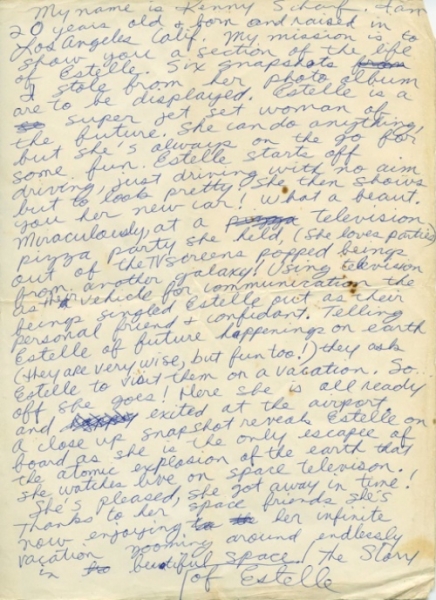 My name is Kenny Scharf. I am
20 years old & born and raised in to
Los Angeles Calif. My mission is to
show you a section of the life
of Estelle. Six snapshots
I stole from her photo album
are to be displayed. Estelle is a
super jet set woman of
the future. She can do anything,
but she's always on the go for
some fun. Estelle starts off
driving, just driving with no aim
but to look pretty. She then shows
you her new car! What a beaut.
Miraculously, at a pizza television
pizza party she held, (she loves parties)
out of the TV screens popped beings
from another galaxy! Using television
as their vehicle for communication the
beings singled Estelle out as their
personal friend & confidant. Telling
Estelle of future happenings on earth
(they are very wise, but fun too!) they ask
Estelle to visit them on a vacation. So...
off she goes! Here she is all ready
and exited at the airport.
A close up snapshot reveals Estelle on
board as she is the only escapie of
the atomic explosion of the earth that
she watches live on space televison.
She's pleased, she got away in time!
Thanks to her space friends she's
now enjoying her infinite
vacation zooming around endlessly
in beutiful space! (The Story
of Estelle